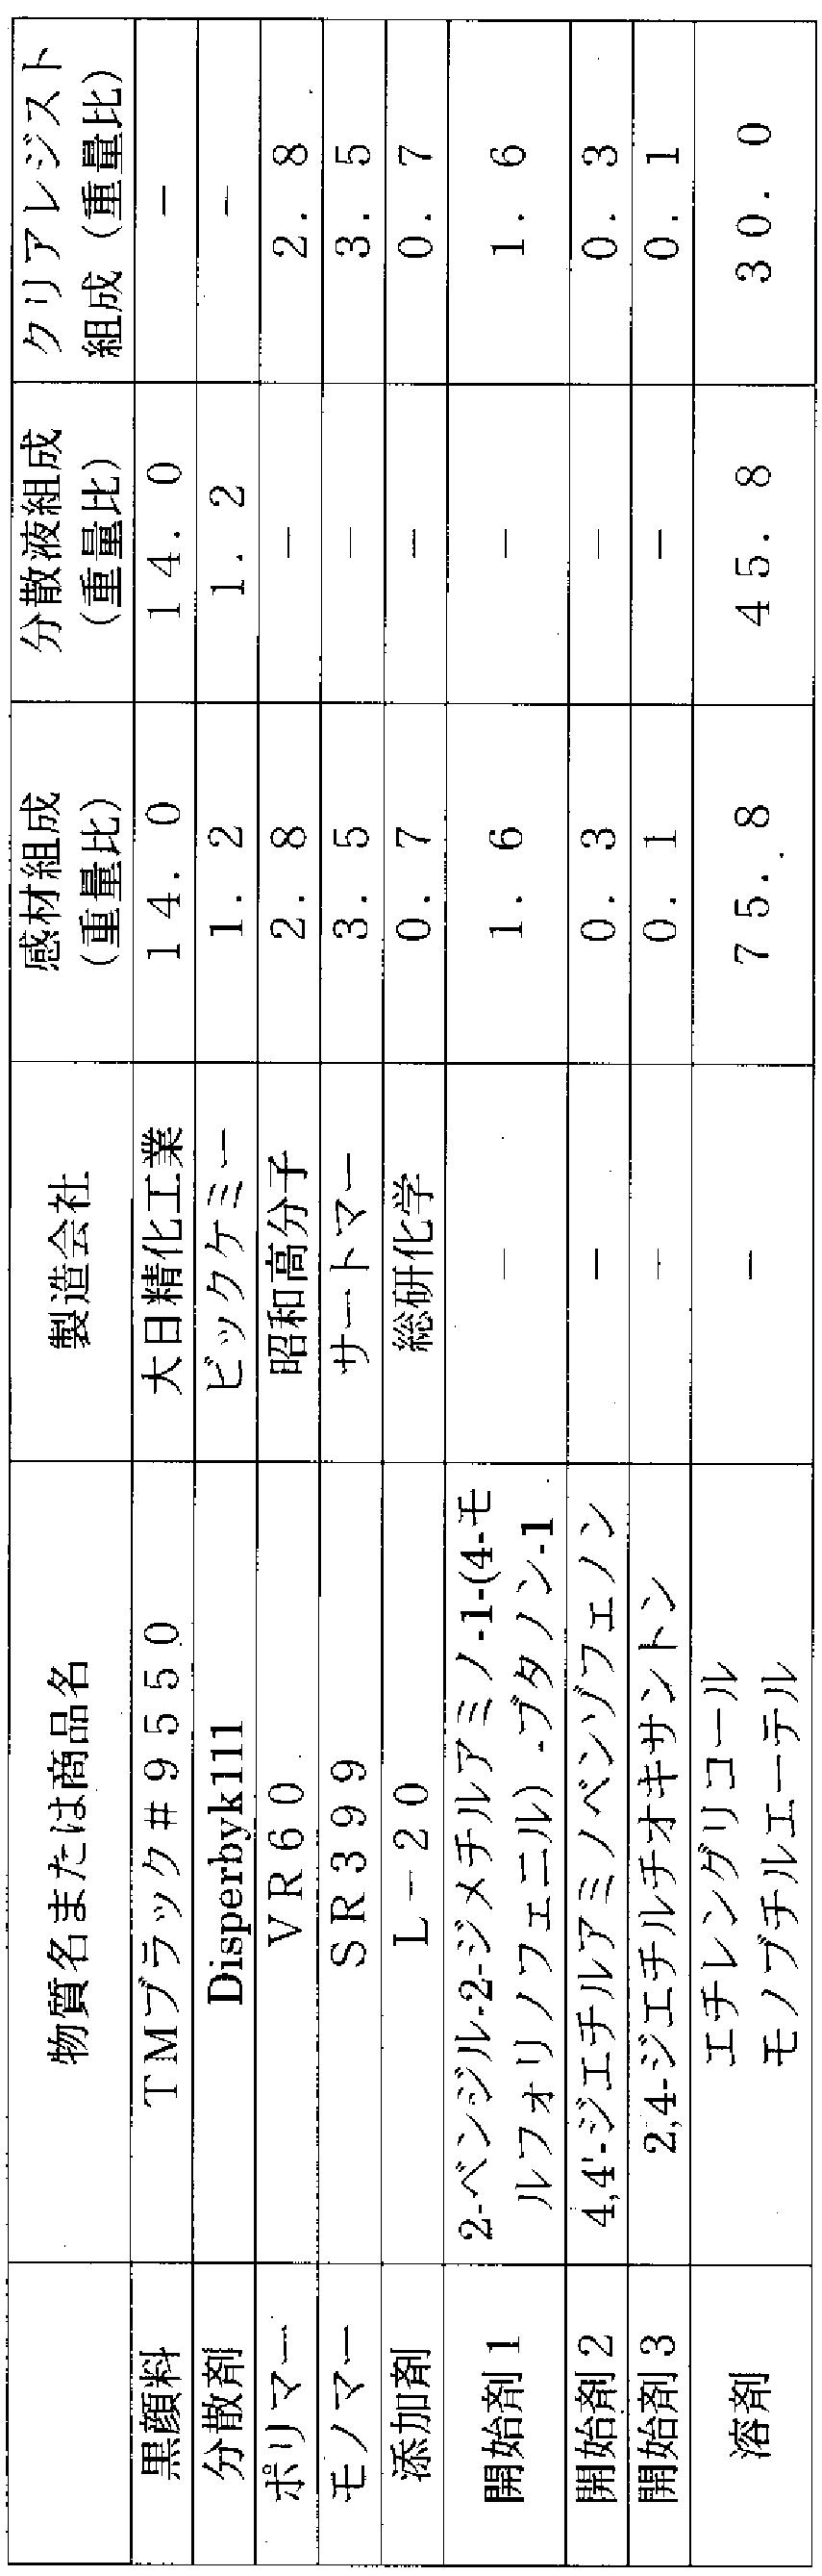 物質名または商品名 製造会社 感材組成 分散液組成 クリアレジスト
(重量比) (重量比) 組成 (重量比)
黒顔料 TMブラック#9550 大日精化工業 14.0 14.0 −
分散剤 Disperbyk111 ビックケミー 1.2 1.2 −
ポリマー VR60 昭和高分子 2.8 − 2.8
モノマー SR399 サートマー 3.5 − 3.5
添加剤 L−20 総研化学 0.7 − 0.7
開始剤1 2-ベンジル-2-ジメチルアミノ-1-(4-モ − 1.6 − 1.6
ルフォリノフェニル)-ブタノン-1
開始剤2 4,4'-ジエチルアミノベンゾフェノン − 0.3 − 0.3
開始剤3 2,4-ジエチルチオキサントン − 0.1 − 0.1
溶剤 エチレングリコール − 75.8 45.8 30.0
モノブチルエーテル